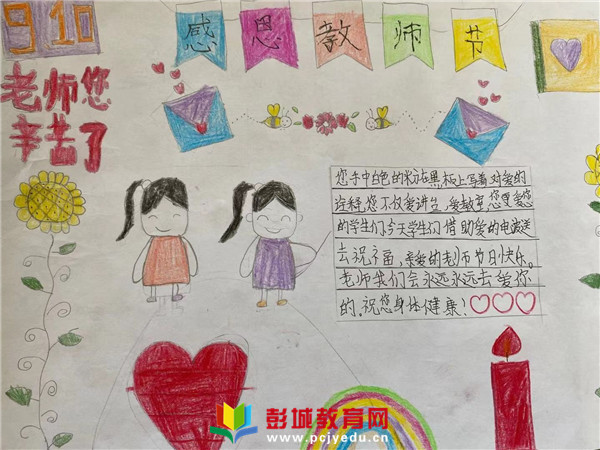 9 10
感恩教师节
老师您
辛苦了
您手中白色的粉站黑板上写着对爱的
诠释,您不仅爱讲台,爱教室,您更爱您
的学生们,今天学生们借助爱的电波送
去祝福,亲爱的老师节日快乐。
老师我们会永远永远去爱你
的,祝您身体健康!
彭城教育网
www.pcjyedu.cn